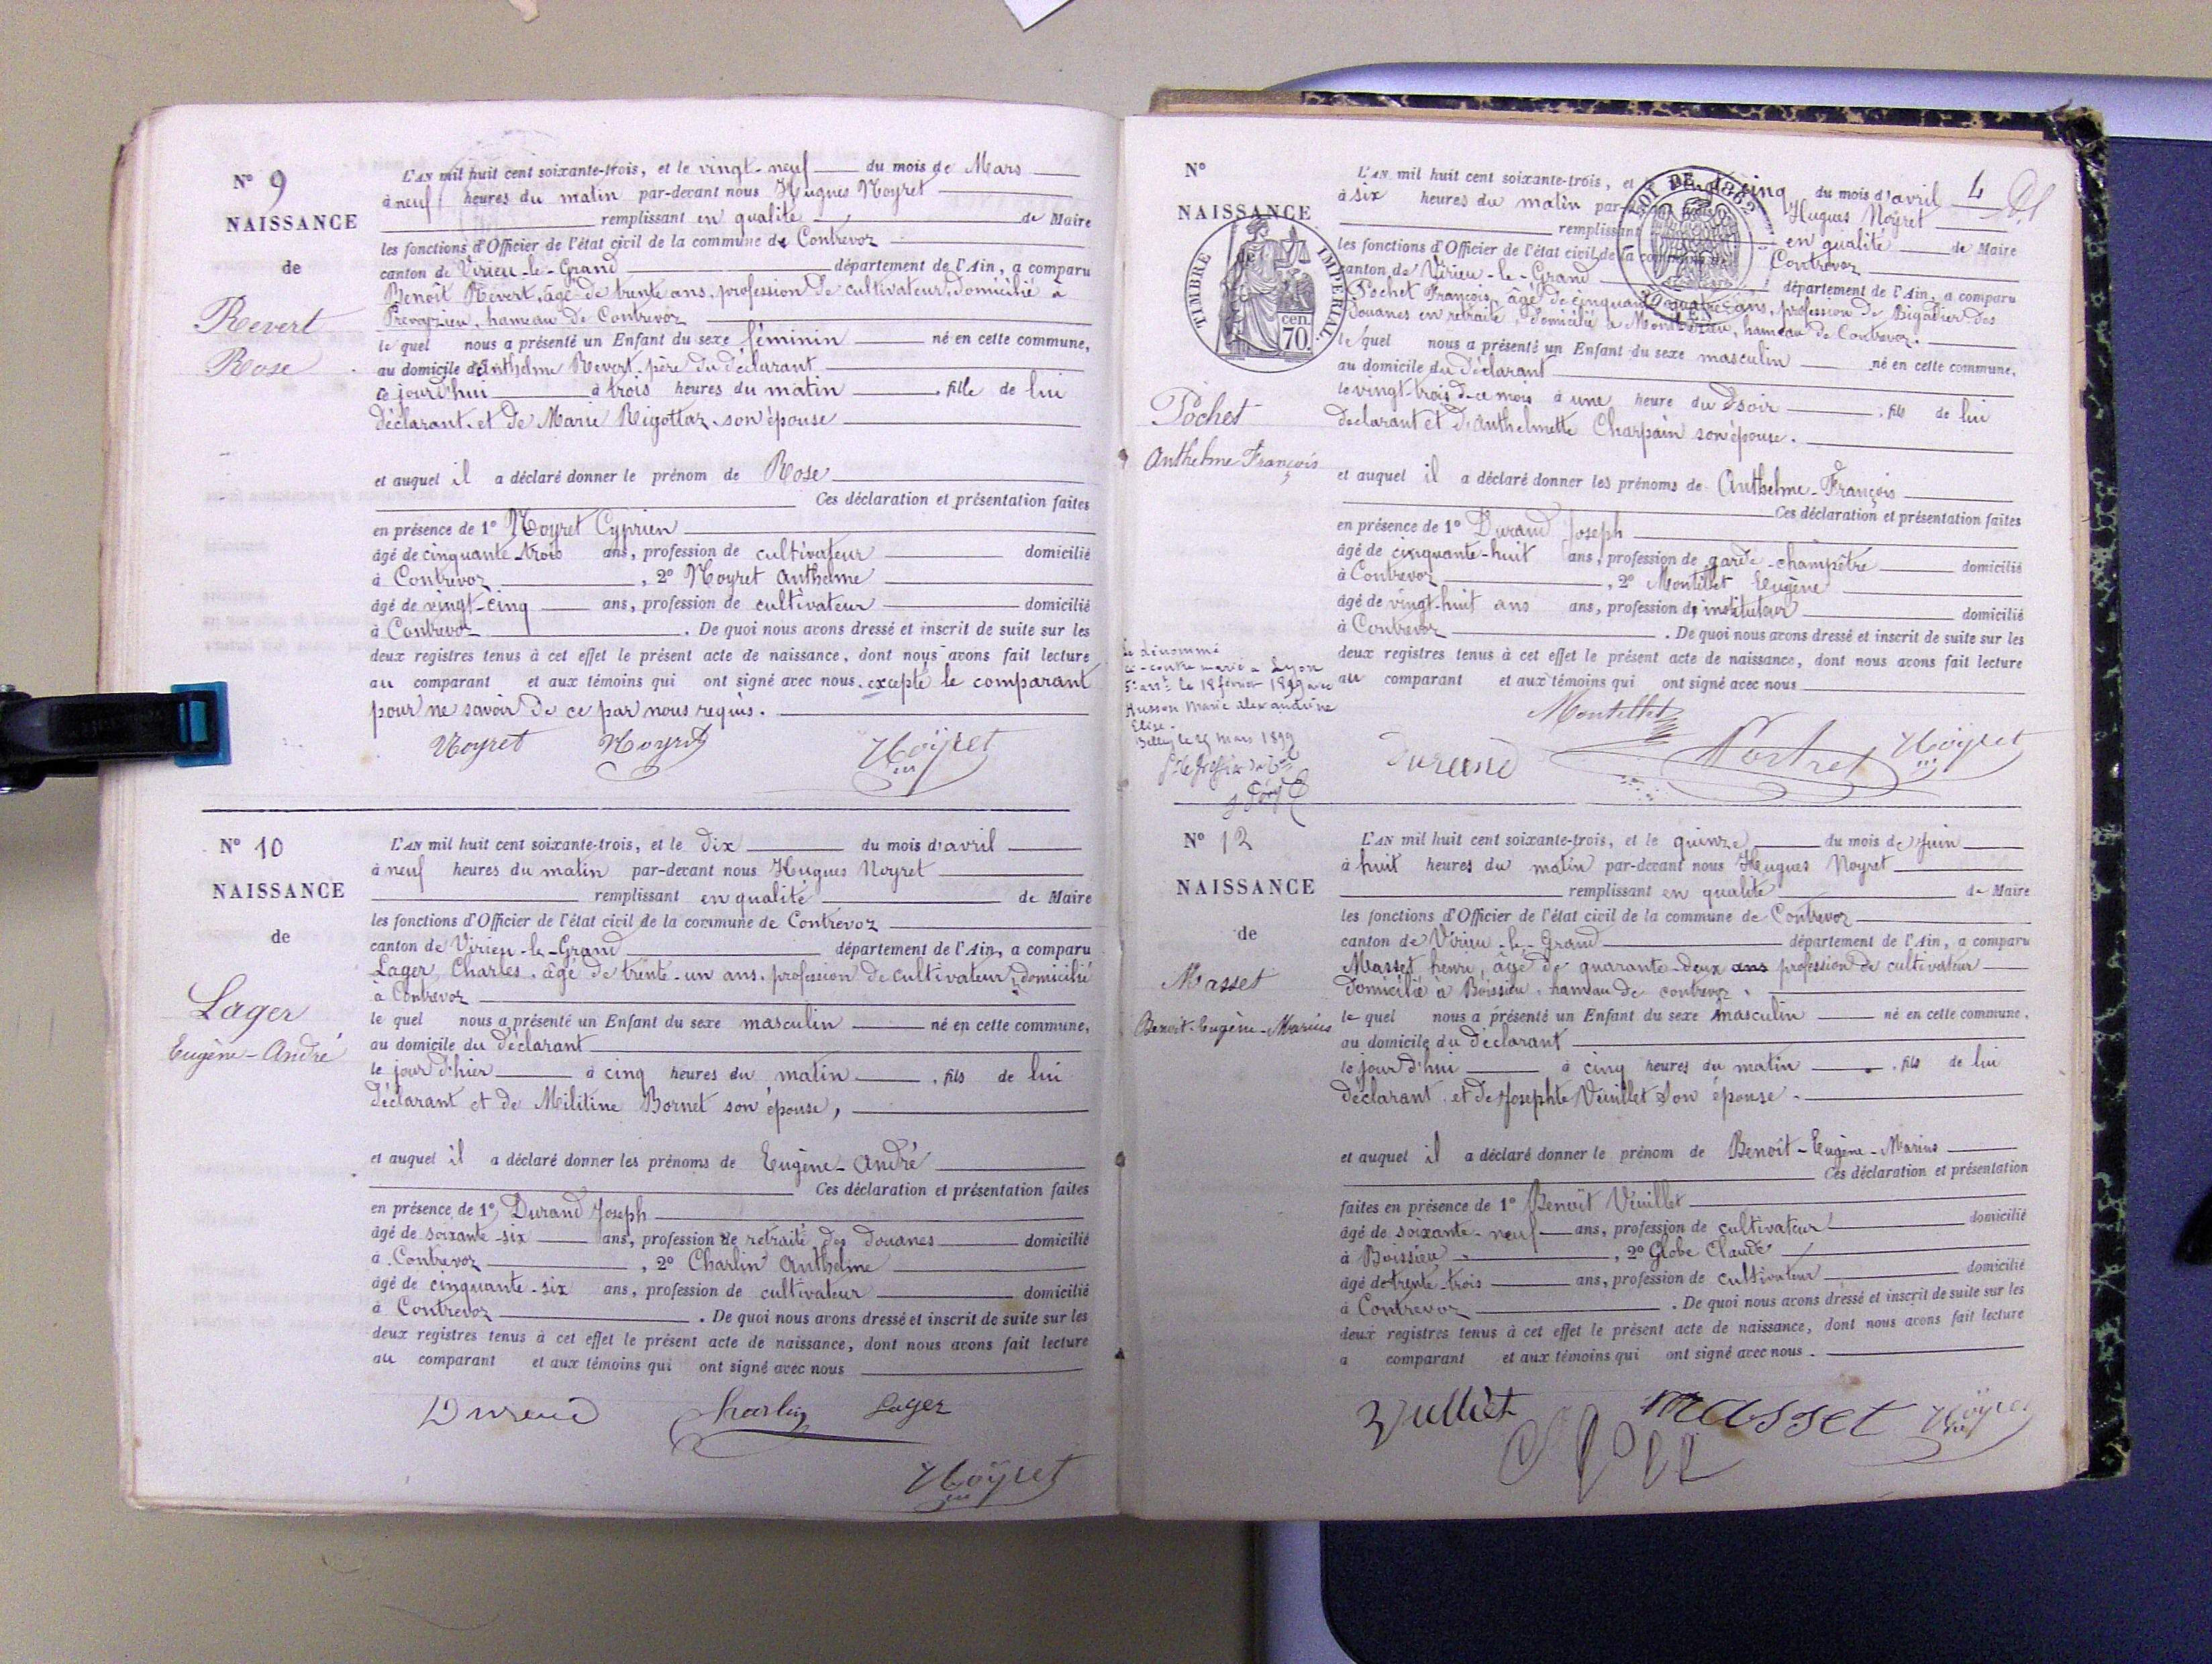 N° 9
NAISSANCE
de
Revert
Rose
L'AN mil huit cent soixante-trois, et le vingt-neuf du mois de Mars
à neuf heures du matin par-devant nous Hugues Noyret
remplissant en qualité de Maire
les fonctions d'Officier de l'état civil de la commune de Contrevoz
canton de Virieu-le-Grand département de l'Ain, a comparu
Benoît Revert, âgé de trente ans, profession de cultivateur, domicilié à
hameau de Contrevoz
le quel nous a présenté un Enfant du sexe féminin né en cette commune,
au domicile d'Anthelme Revert, père du déclarant
ce jourd'hui à trois heures du matin , fille de lui
déclarant, et de Marie Rigottaz, son épouse
et auquel il a déclaré donner le prénom de Rose
Ces déclaration et présentation faites
en présence de 1° Noyret Cyprien
âgé de cinquante-trois ans, profession de cultivateur domicilié
à Contrevoz , 2° Noyret Anthelme
âgé de vingt-cinq ans, profession de cultivateur domicilié
à Contrevoz . De quoi nous avons dressé et inscrit de suite sur les
deux registres tenus à cet effet le présent acte de naissance, dont nous avons fait lecture
au comparant et aux témoins qui ont signé avec nous, excepté le comparant
pour ne savoir de ce par nous requis.
Noyret Noyret Noÿret
N° 10
NAISSANCE
de
Lager
Eugène-André
L'AN mil huit cent soixante-trois, et le dix du mois d'avril
à neuf heures du matin par-devant nous Hugues Noyret
remplissant en qualité de Maire
les fonctions d'Officier de l'état civil de la commune de Contrevoz
canton de Virieu-le-Grand département de l'Ain, a comparu
Lager Charles, âgé de trente-un ans, profession de cultivateur, domicilié
à Contrevoz
le quel nous a présenté un Enfant du sexe masculin né en cette commune,
au domicile du déclarant
le jour d'hier à cinq heures du matin , fils de lui
déclarant et de Militine Bornet son épouse,
et auquel il a déclaré donner les prénoms de Eugène-André
Ces déclaration et présentation faites
en présence de 1° Durand Joseph
âgé de soixante-six ans, profession de retraité des Douanes domicilié
à Contrevoz , 2° Charlin Anthelme
âgé de cinquante-six ans, profession de cultivateur domicilié
à Contrevoz . De quoi nous avons dressé et inscrit de suite sur les
deux registres tenus à cet effet le présent acte de naissance, dont nous avons fait lecture
au comparant et aux témoins qui ont signé avec nous
Durand Charlin Lager
Noÿret
N°
NAISSANCE
de
TIMBRE IMPÉRIAL
cen.
70.
LOI DE 1862
Pochet
Anthelme François
4
L'AN mil huit cent soixante-trois, et le vingt-cinq du mois d'avril
à six heures du matin par-devant nous Hugues Noÿret
remplissant en qualité de Maire
les fonctions d'Officier de l'état civil de la commune de Contrevoz
canton de Virieu-le-Grand département de l'Ain, a comparu
Pochet François, âgé de cinquante quatre ans, profession de Brigadier des
Douanes en retraite, domicilié à hameau de Contrevoz.
le quel nous a présenté un Enfant du sexe masculin né en cette commune,
au domicile du déclarant
le vingt-trois de ce mois à une heure du soir , fils de lui
déclarant et d'Anthelmette Charpain son épouse.
et auquel il a déclaré donner les prénoms de Anthelme-François
Ces déclaration et présentation faites
en présence de 1° Durand Joseph
âgé de cinquante-huit ans, profession de garde-champêtre domicilié
à Contrevoz , 2° Montillet Eugène
âgé de vingt-huit ans ans, profession de instituteur domicilié
à Contrevoz . De quoi nous avons dressé et inscrit de suite sur les
deux registres tenus à cet effet le présent acte de naissance, dont nous avons fait lecture
au comparant et aux témoins qui ont signé avec nous
Le dénommé
ci-contre marié à Lyon
5e arrt le 18 février 1899 avec
Husson Marie Alexandrine
Elise.
Belley le 25 mars 1899
Montillet
Durand Noÿret
N° 12
NAISSANCE
de
Masset
Benoît-Eugène-Marius
L'AN mil huit cent soixante-trois, et le quinze du mois de Juin
à huit heures du matin par-devant nous Hugues Noyret
remplissant en qualité de Maire
les fonctions d'Officier de l'état civil de la commune de Contrevoz
canton de Virieu-le-Grand département de l'Ain, a comparu
Masset henri, âgé de quarante-deux ans profession de cultivateur
domicilié à Boissieu, hameau de contrevoz.
le quel nous a présenté un Enfant du sexe masculin né en cette commune,
au domicile du déclarant
le jour d'hui à cinq heures du matin , fils de lui
déclarant, et de Josephte Veuillet son épouse.
et auquel il a déclaré donner le prénom de Benoît-Eugène-Marius
Ces déclaration et présentation
faites en présence de 1° Benoît Veuillet
âgé de soixante-neuf ans, profession de cultivateur domicilié
à Boissieu , 2° Globe Claude
âgé de trente-trois ans, profession de cultivateur domicilié
à Contrevoz . De quoi nous avons dressé et inscrit de suite sur les
deux registres tenus à cet effet le présent acte de naissance, dont nous avons fait lecture
a comparant et aux témoins qui ont signé avec nous.
Vulliet masset Noÿret